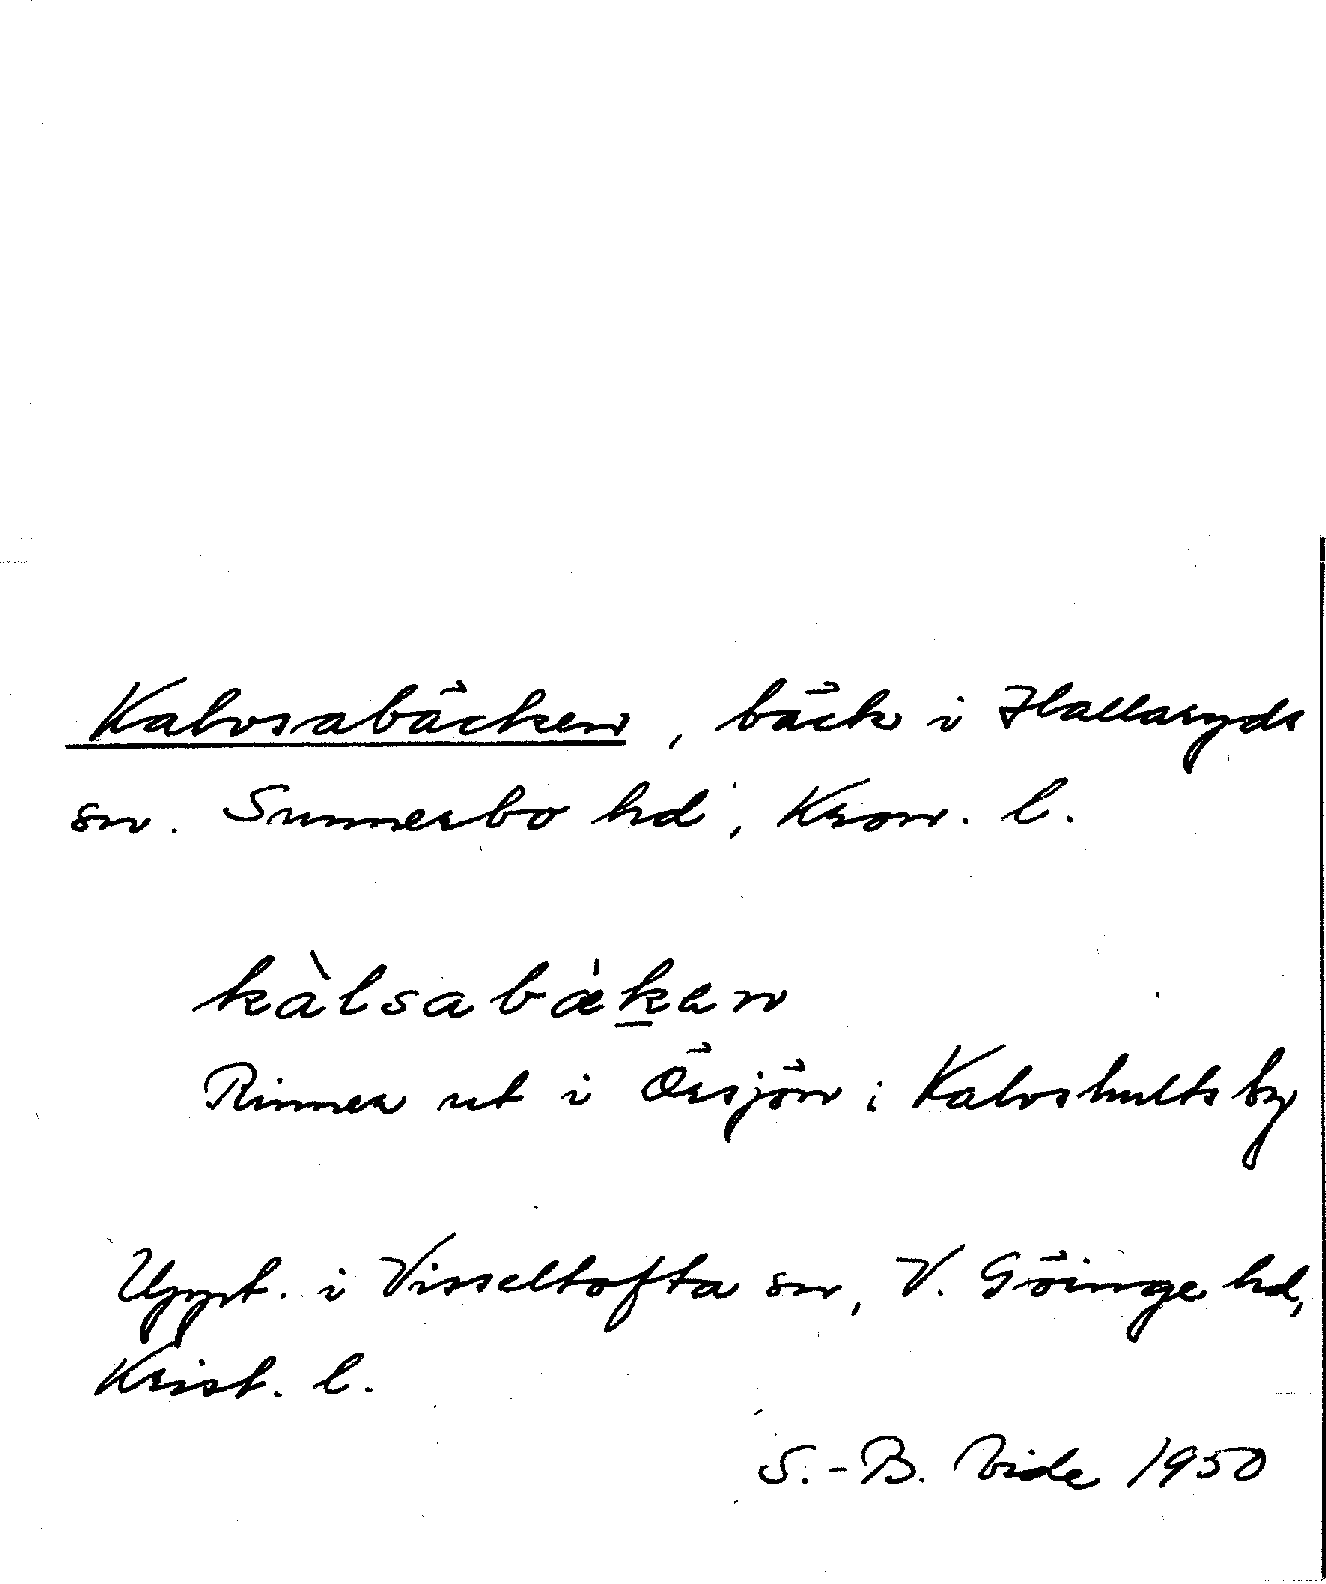 Kalvsabäcken, bäck i Hallaryds
sn. Sunnerbo hd, Kron. l.
kàlsabækan
Rinner ut i Örsjön i Kalvshults by
Uppt. i Visseltofta sn, V. Göinge hd,
Krist. l.
S.-B. Vide 1950